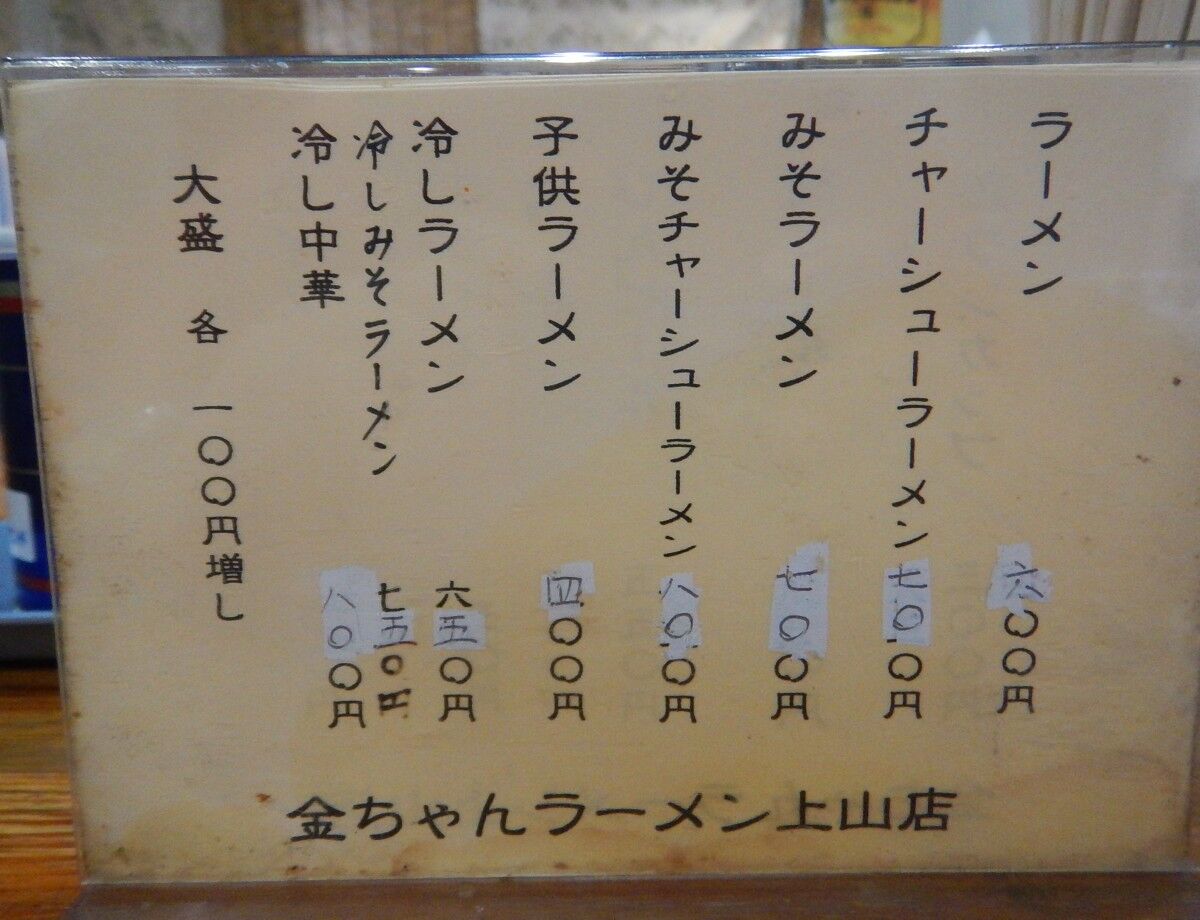 ラーメン 六〇〇円
チャーシューラーメン 七〇〇円
みそラーメン 七〇〇円
みそチャーシューラーメン 八〇〇円
子供ラーメン 四〇〇円
冷しラーメン 六五〇円
冷しみそラーメン 七五〇円
冷し中華 八〇〇円
大盛 各 一〇〇円増し
金ちゃんラーメン上山店